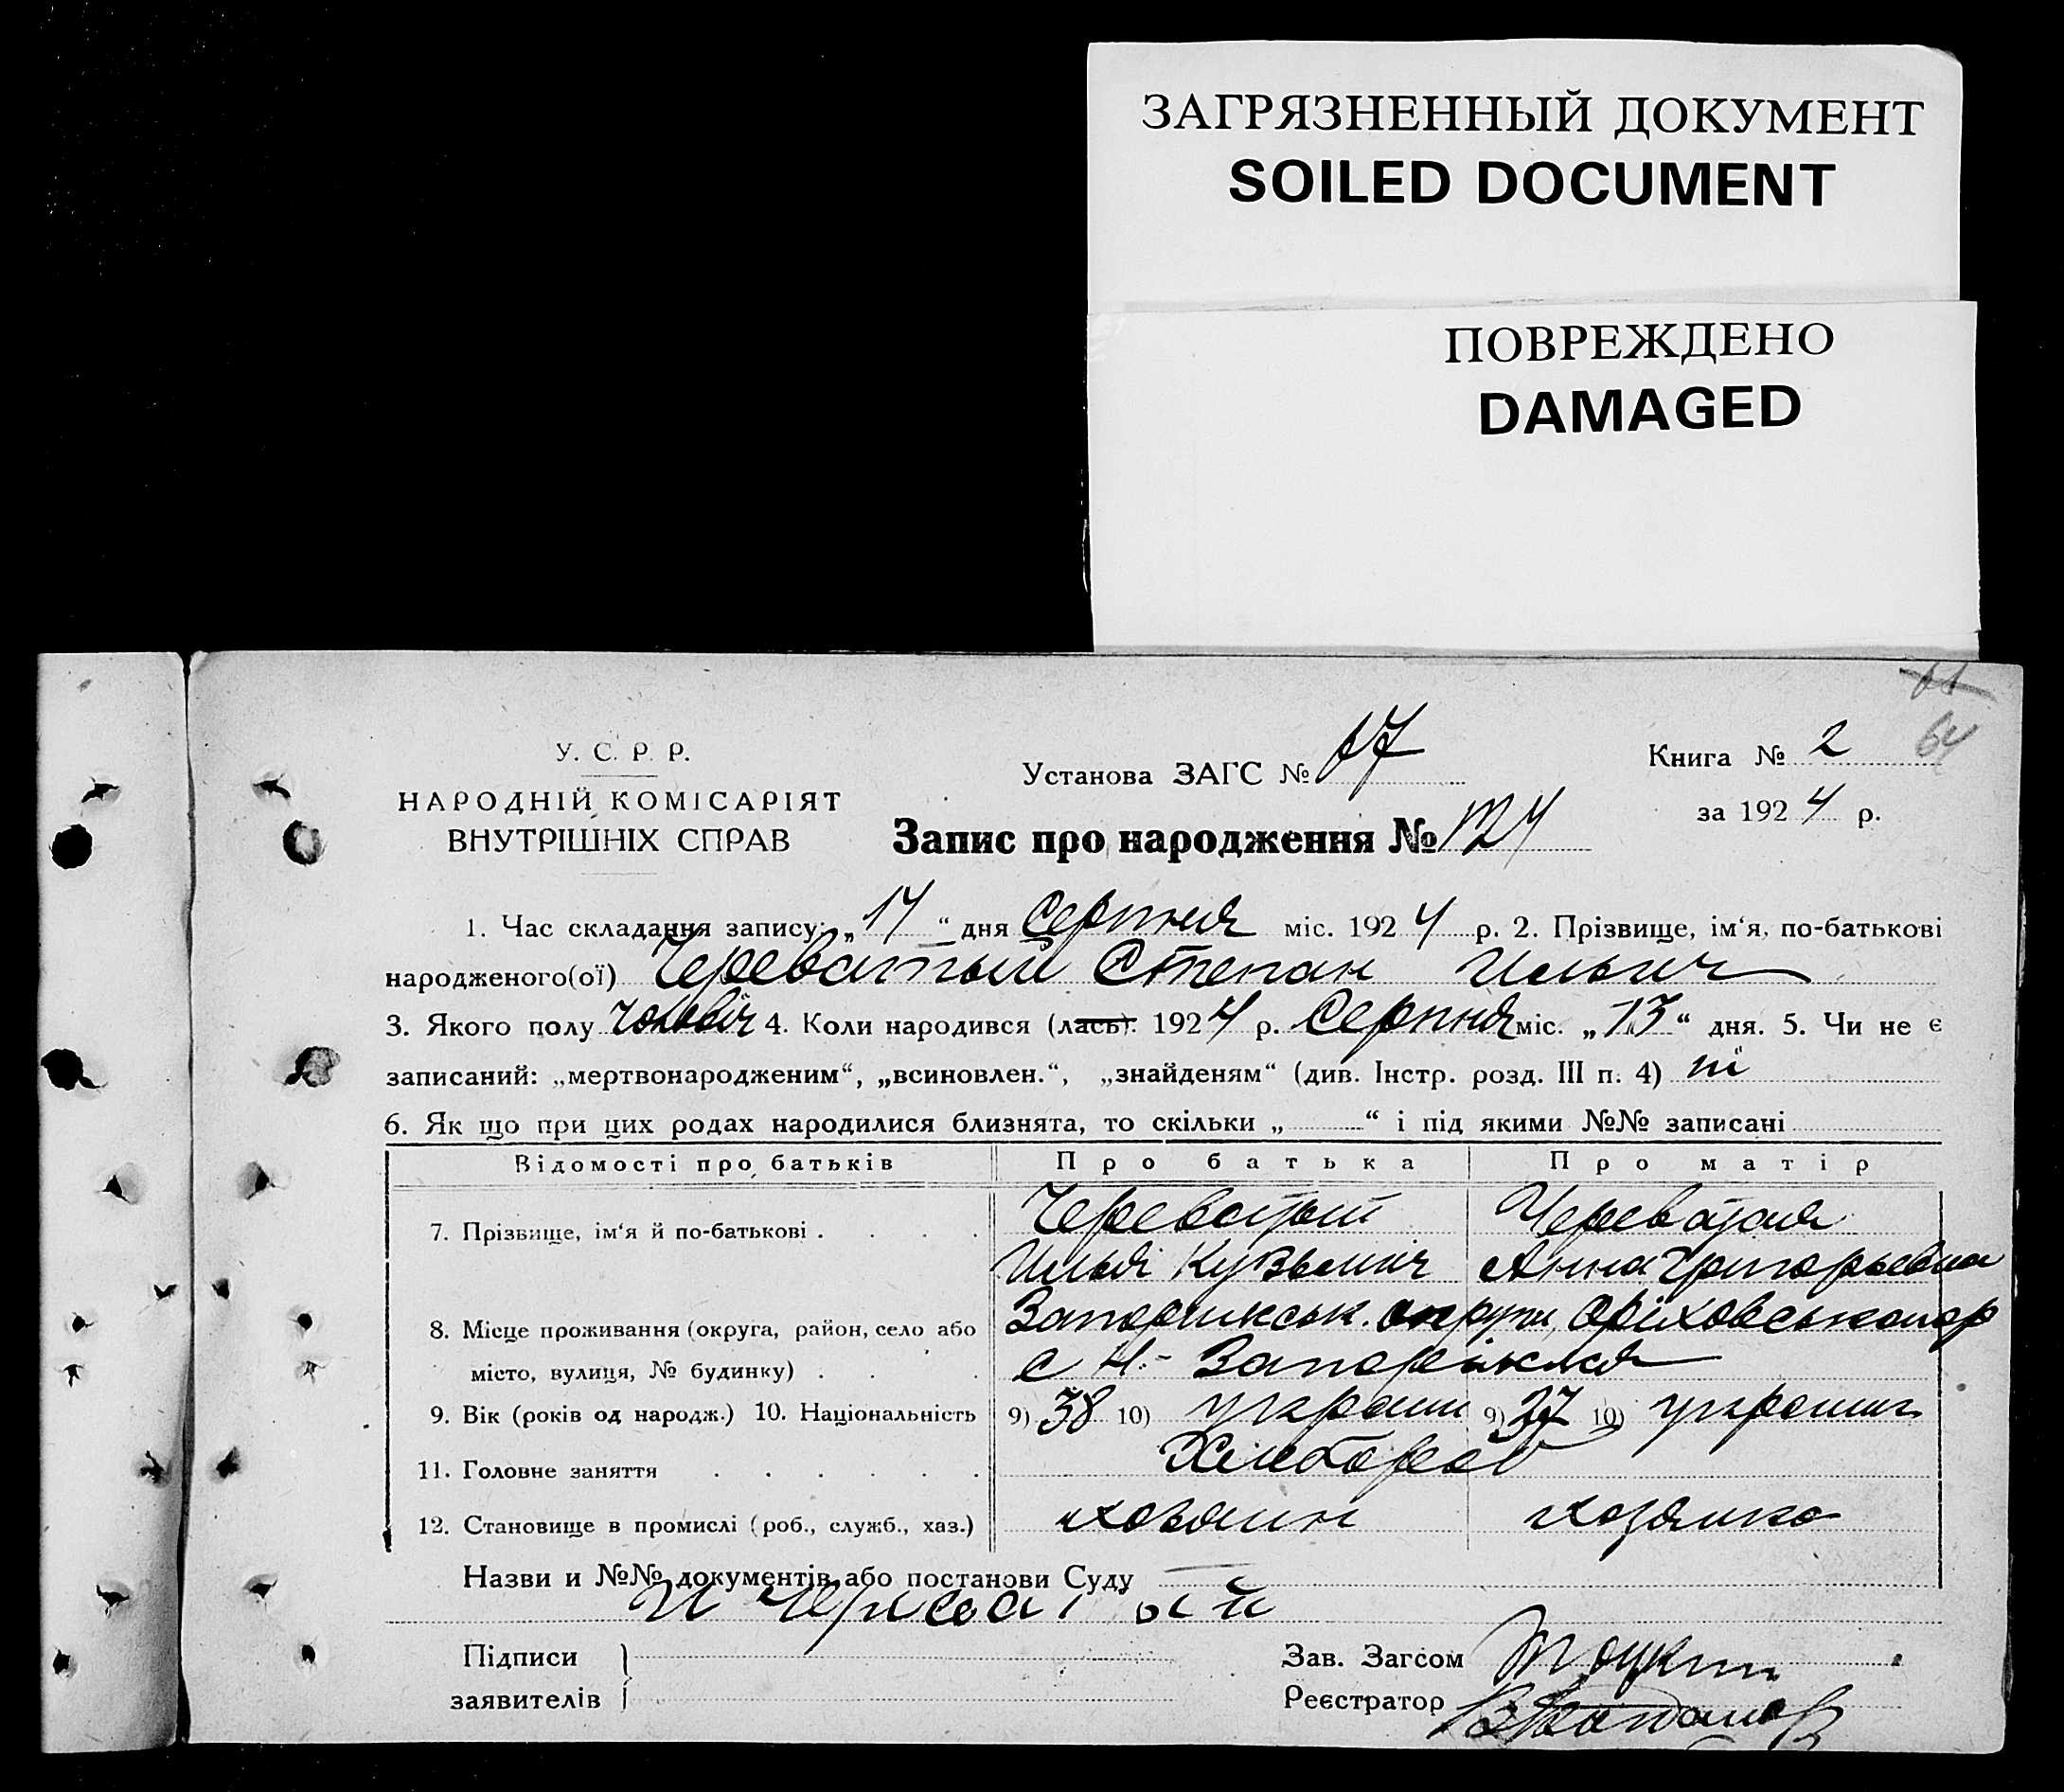 ЗАГРЯЗНЕННЫЙ ДОКУМЕНТ
SOILED DOCUMENT
ПОВРЕЖДЕНО
DAMAGED
61
64
У. С. Р. Р.
НАРОДНІЙ КОМІСАРІЯТ
ВНУТРІШНІХ СПРАВ
Установа ЗАГС № 17
Книга № 2
за 1924 р.
Запис про народження № 124
1. Час складання запису: „14“ дня Серпня міс. 1924 р. 2. Прізвище, ім‘я, по-батькові
народженого(ої) Череватый Степан Ильич
3. Якого полу чоловіч 4. Коли народився (лась). 1924 р. Серпня міс. „13“ дня. 5. Чи не є
записаний: „мертвонародженим“, „всиновлен.“, „знайденям“ (див. Інстр. розд. III п. 4) ні
6. Як що при цих родах народилися близнята, то скільки „ “ і під якими №№ записані
Відомості про батьків Про батька Про матір
7. Прізвище, ім‘я й по-батькові . . . . Череватый Череватая
Илья Кузьмич Анна Григорьевна
8. Місце проживання (округа, район, село або Запорижськ. округи, Оріховського р
місто, вулиця, № будинку) . . . с Н.- Запоріжжя
9. Вік (років од народж.) 10. Національність 9) 38 10) украин 9) 37 10) украинк
11. Головне заняття . . . . . . Хлебороб
12. Становище в промислі (роб., служб., хаз.) хозяин хозяйка
Назви и №№ документів або постанови Суду —
И Череватый
Підписи
заявителів
Зав. Загсом
Реєстратор